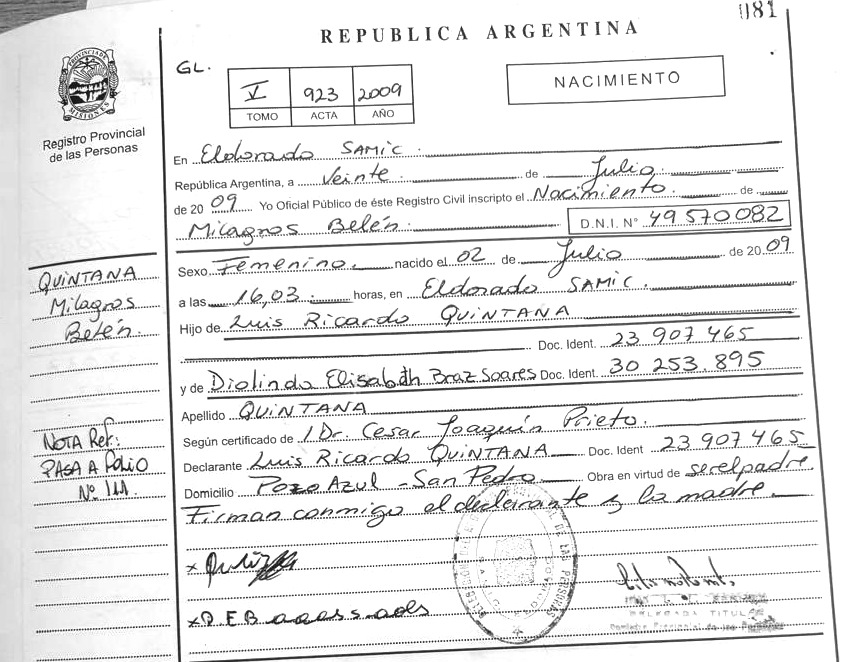 081
REPUBLICA ARGENTINA
PROVINCIA DE MISIONES
Registro Provincial
de las Personas
GL.
V 923 2009
TOMO ACTA AÑO
NACIMIENTO
En Eldorado SAMIC.
República Argentina, a Veinte de Julio
de 2009 Yo Oficial Público de éste Registro Civil inscripto el Nacimiento. de
Milagros Belén. D.N.I. N° 49570082
Sexo Femenino. nacido el 02 de Julio de 2009
a las 16,03 horas, en Eldorado SAMIC.
Hijo de Luis Ricardo QUINTANA
Doc. Ident. 23 907 465
y de Diolinda Elisabeth Braz Soares Doc. Ident. 30 253.895
Apellido QUINTANA
Según certificado de Dr. Cesar Joaquín Prieto.
Declarante Luis Ricardo QUINTANA Doc. Ident 23 907 465
Domicilio Pozo Azul - San Pedro Obra en virtud de ser el padre.
Firman conmigo el declarante y la madre.
QUINTANA
Milagros
Belén.
NOTA Ref:
PASA A FOLIO
Nº 111
DELEGADA TITULAR